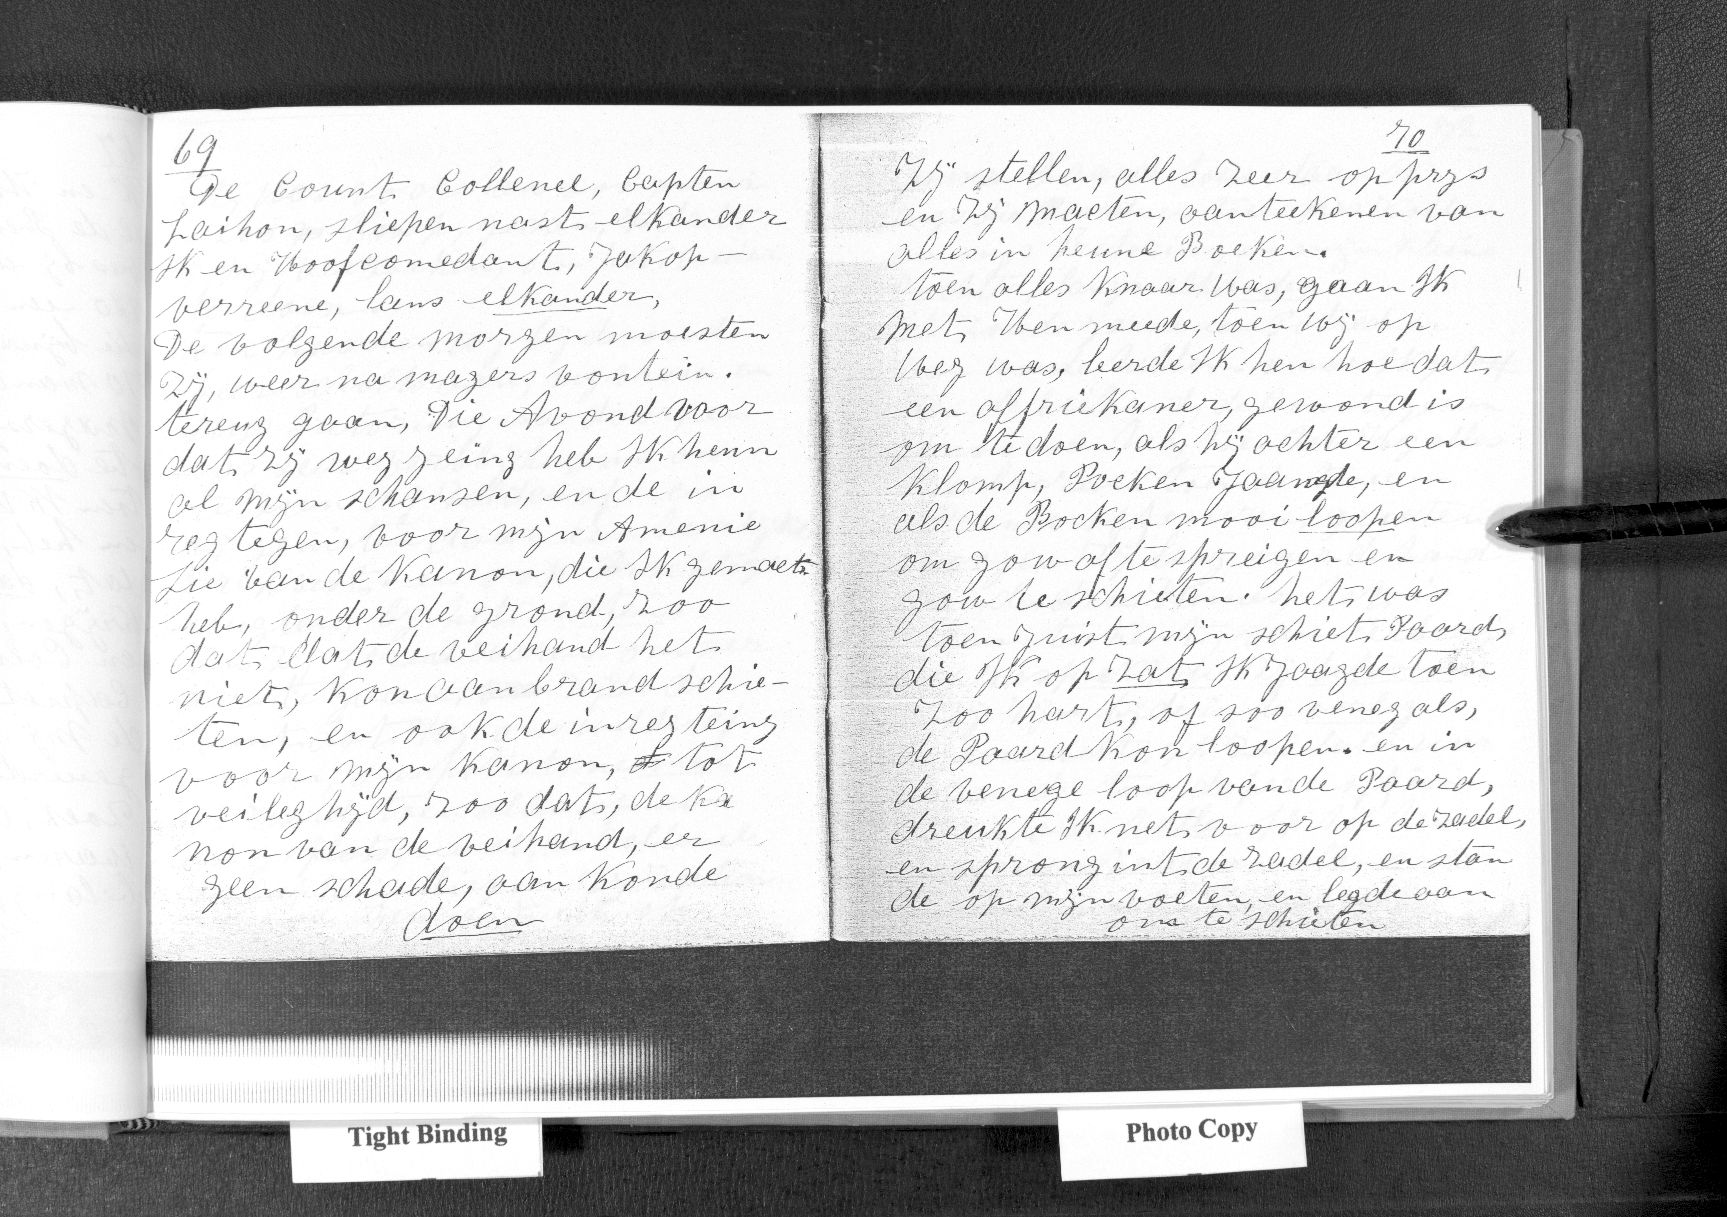 69
De Count Collenel, Capten
Laihon, sliepen nast elkander
Ik en Hoofcomedant, Jakop-
verreene, lans elkander,
De volgende morgen moesten
zÿ, weer na magers vontein.
tereug gaan, Die Avond voor
dat zÿ weg geing heb Ik henn
al mÿn schansen, en de in
regtegen, voor mÿn Amenie
sie van de Kanon, die Ik gemact
heb, onder de grond, zoo
dat dat de veihand het
niet, Kon aan brand schie-
ten, en ook de inregteing
voor mÿn Kanon, tot
veileghÿd, zoo dat, de Ka
non van de veihand, er
geen schade, aan Konde
doen
70
Zÿ stellen, alles zeer op prys
en Zÿ macten, aanteekenen van
alles in heune Boeken.
toen alles Knaar was, gaan Ik
met Hen meede, toen wÿ op
weg was, leerde Ik hen hoe dat
een affriekaner, gewond is
om te doen, als hÿ achter een
Klomp, Bocken Jaagde, en
als de Bocken mooi loopen
om gow af te spreigen en
gow te schieten. het was
toen juist mÿn schiet Paard
die Ik op zat Ik Jaagde toen
zoo hart, of soo veneg als,
de Paard Kon loopen. en in
de venege loop van de Paard,
dreukte Ik net voor op de zadel,
en sprong int de zadel, en stan
de op mÿn voeten, en legde aan
om te schieten
Tight Binding
Photo Copy